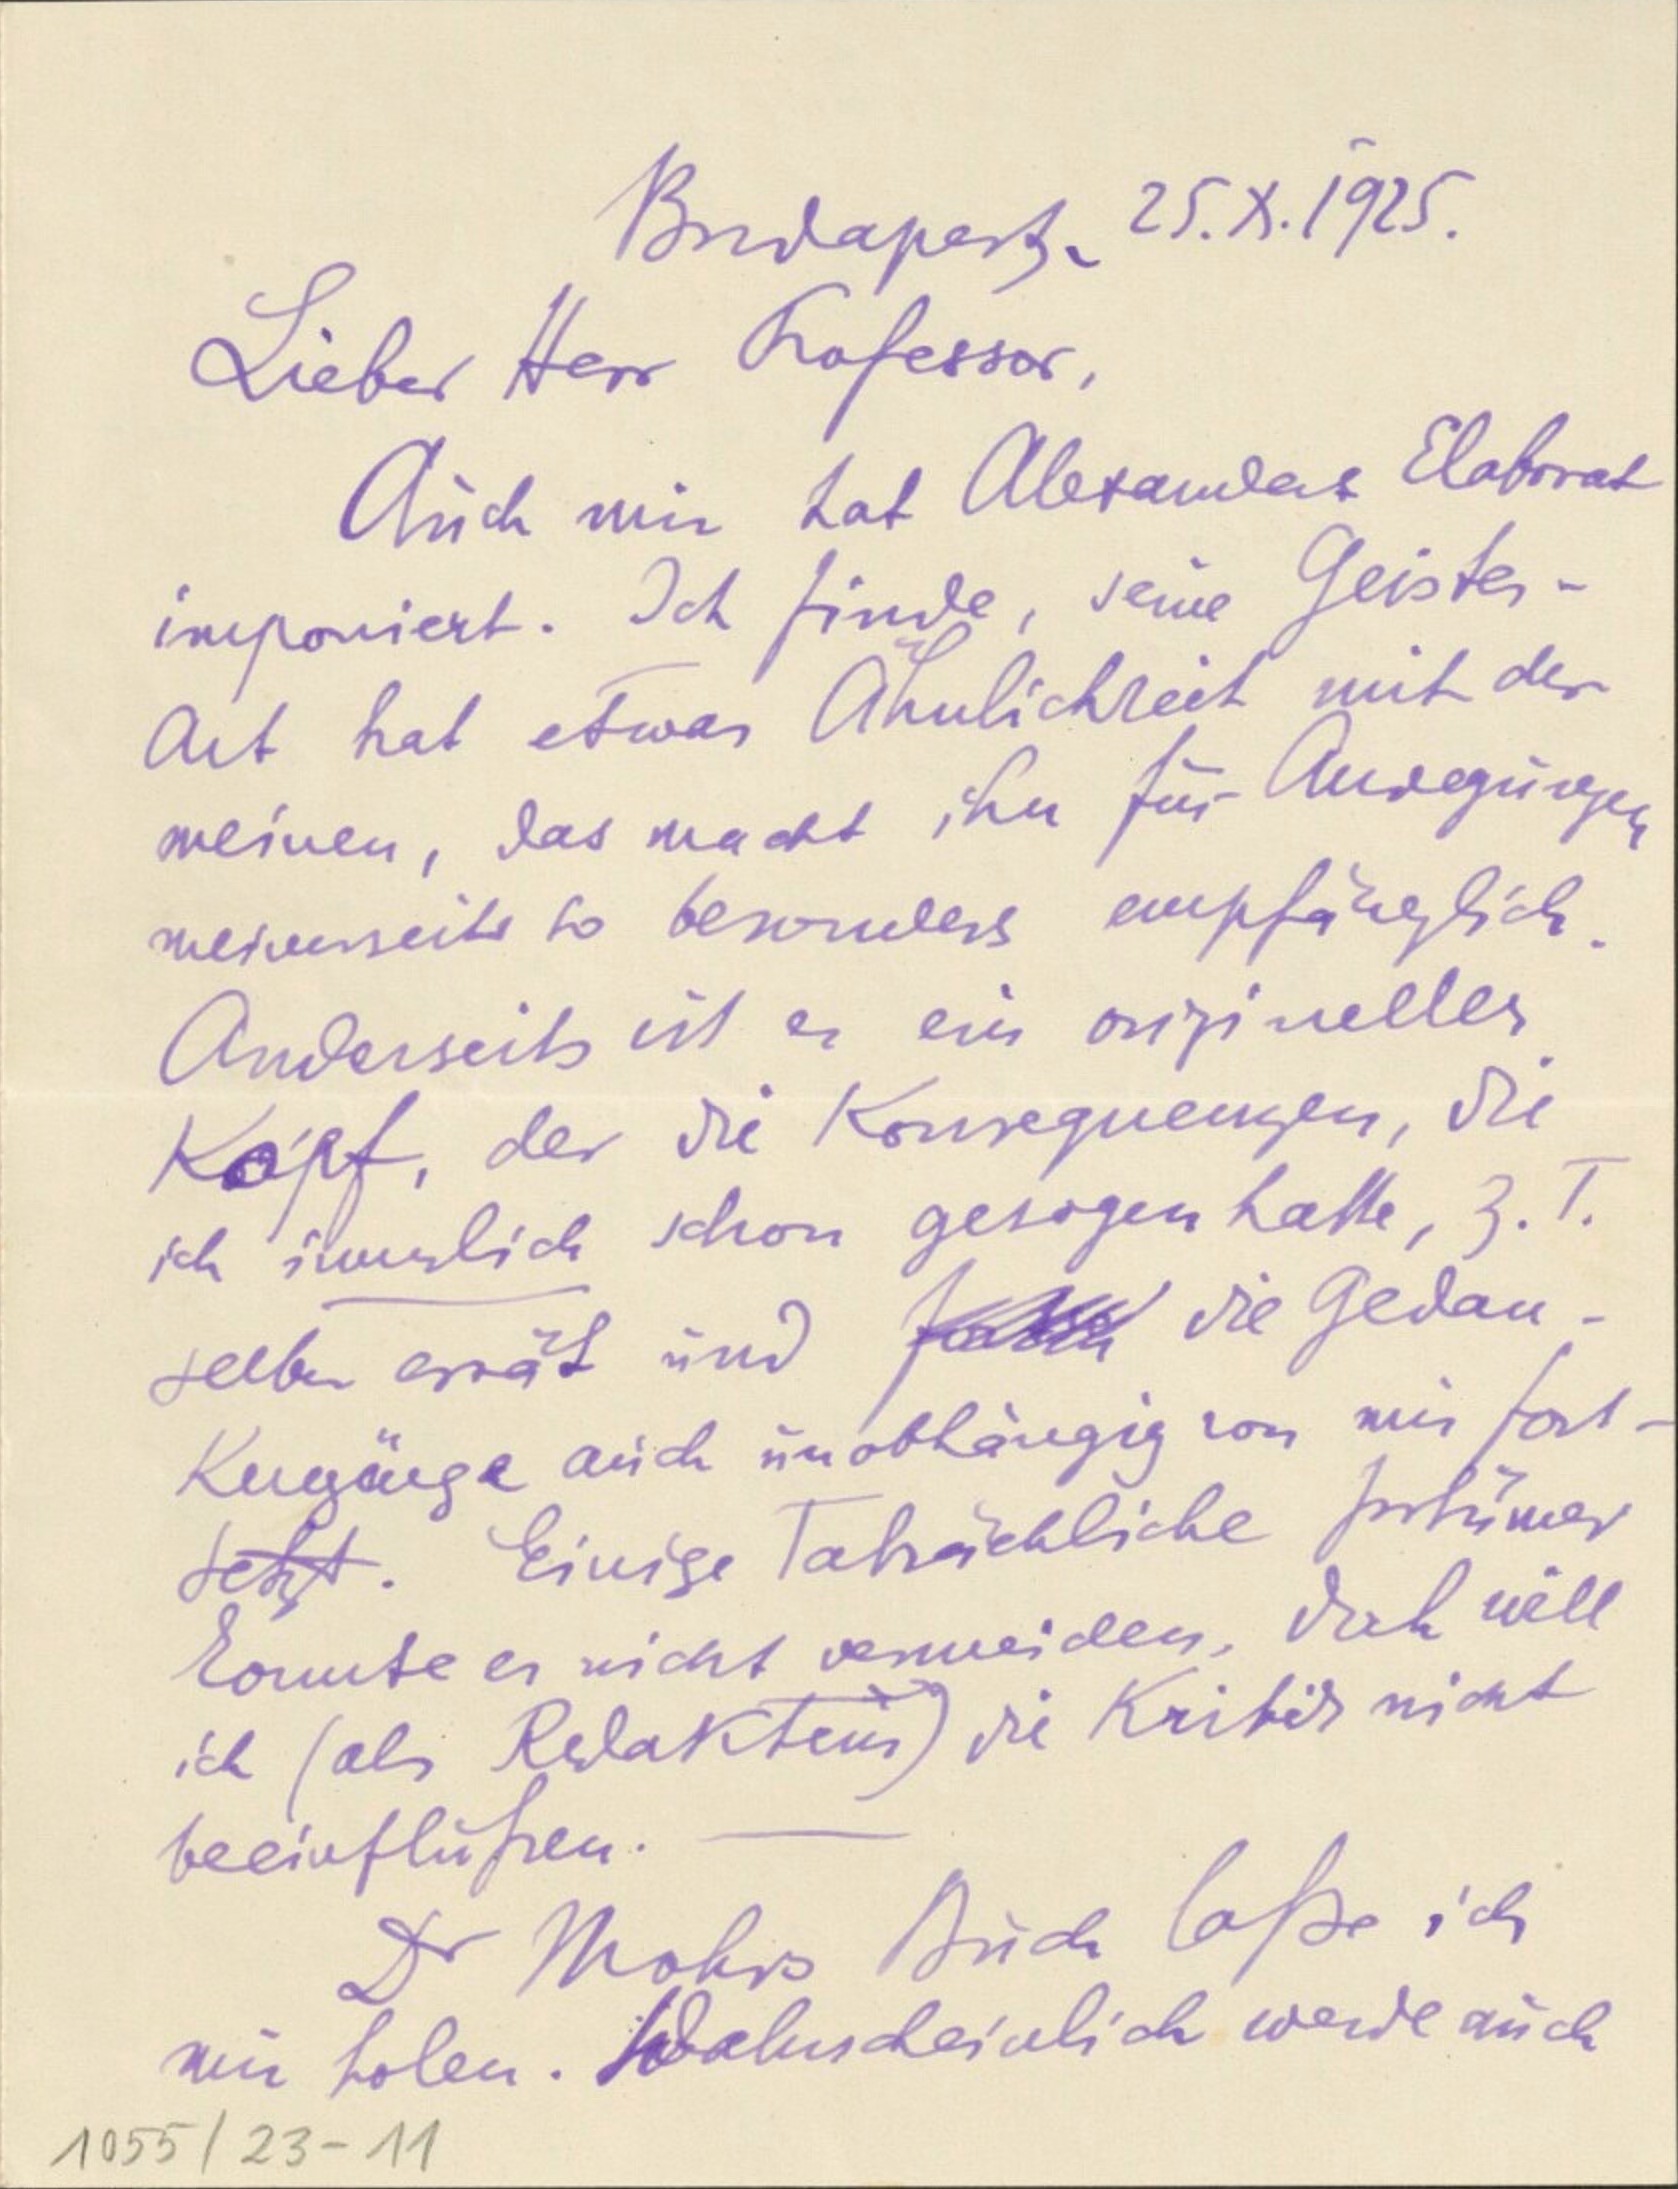 Budapest, 25.X.1925.
Lieber Herr Professor,
Auch mir hat Alexanders Elaborat
imponiert. Ich finde, seine Geistes-
Art hat etwas Ähnlichkeit mit der
meinen, das macht ihn für Anregungen
meinerseits so besonders empfänglich.
Anderseits ist er ein origineller
Kopf, der die Konsequenzen, die
ich innerlich schon gezogen hatte, z. T.
selber errät und die Gedan-
kengänge auch unabhängig von mir fort-
setzt. Einige Tatsächliche Irrtümer
konnte er nicht vermeiden, doch will
ich (als Redakteur) die Kritik nicht
beeinflußen. —
Dr Mohrs Buch laße ich
mir holen. Wahrscheinlich werde auch
1055/23-11